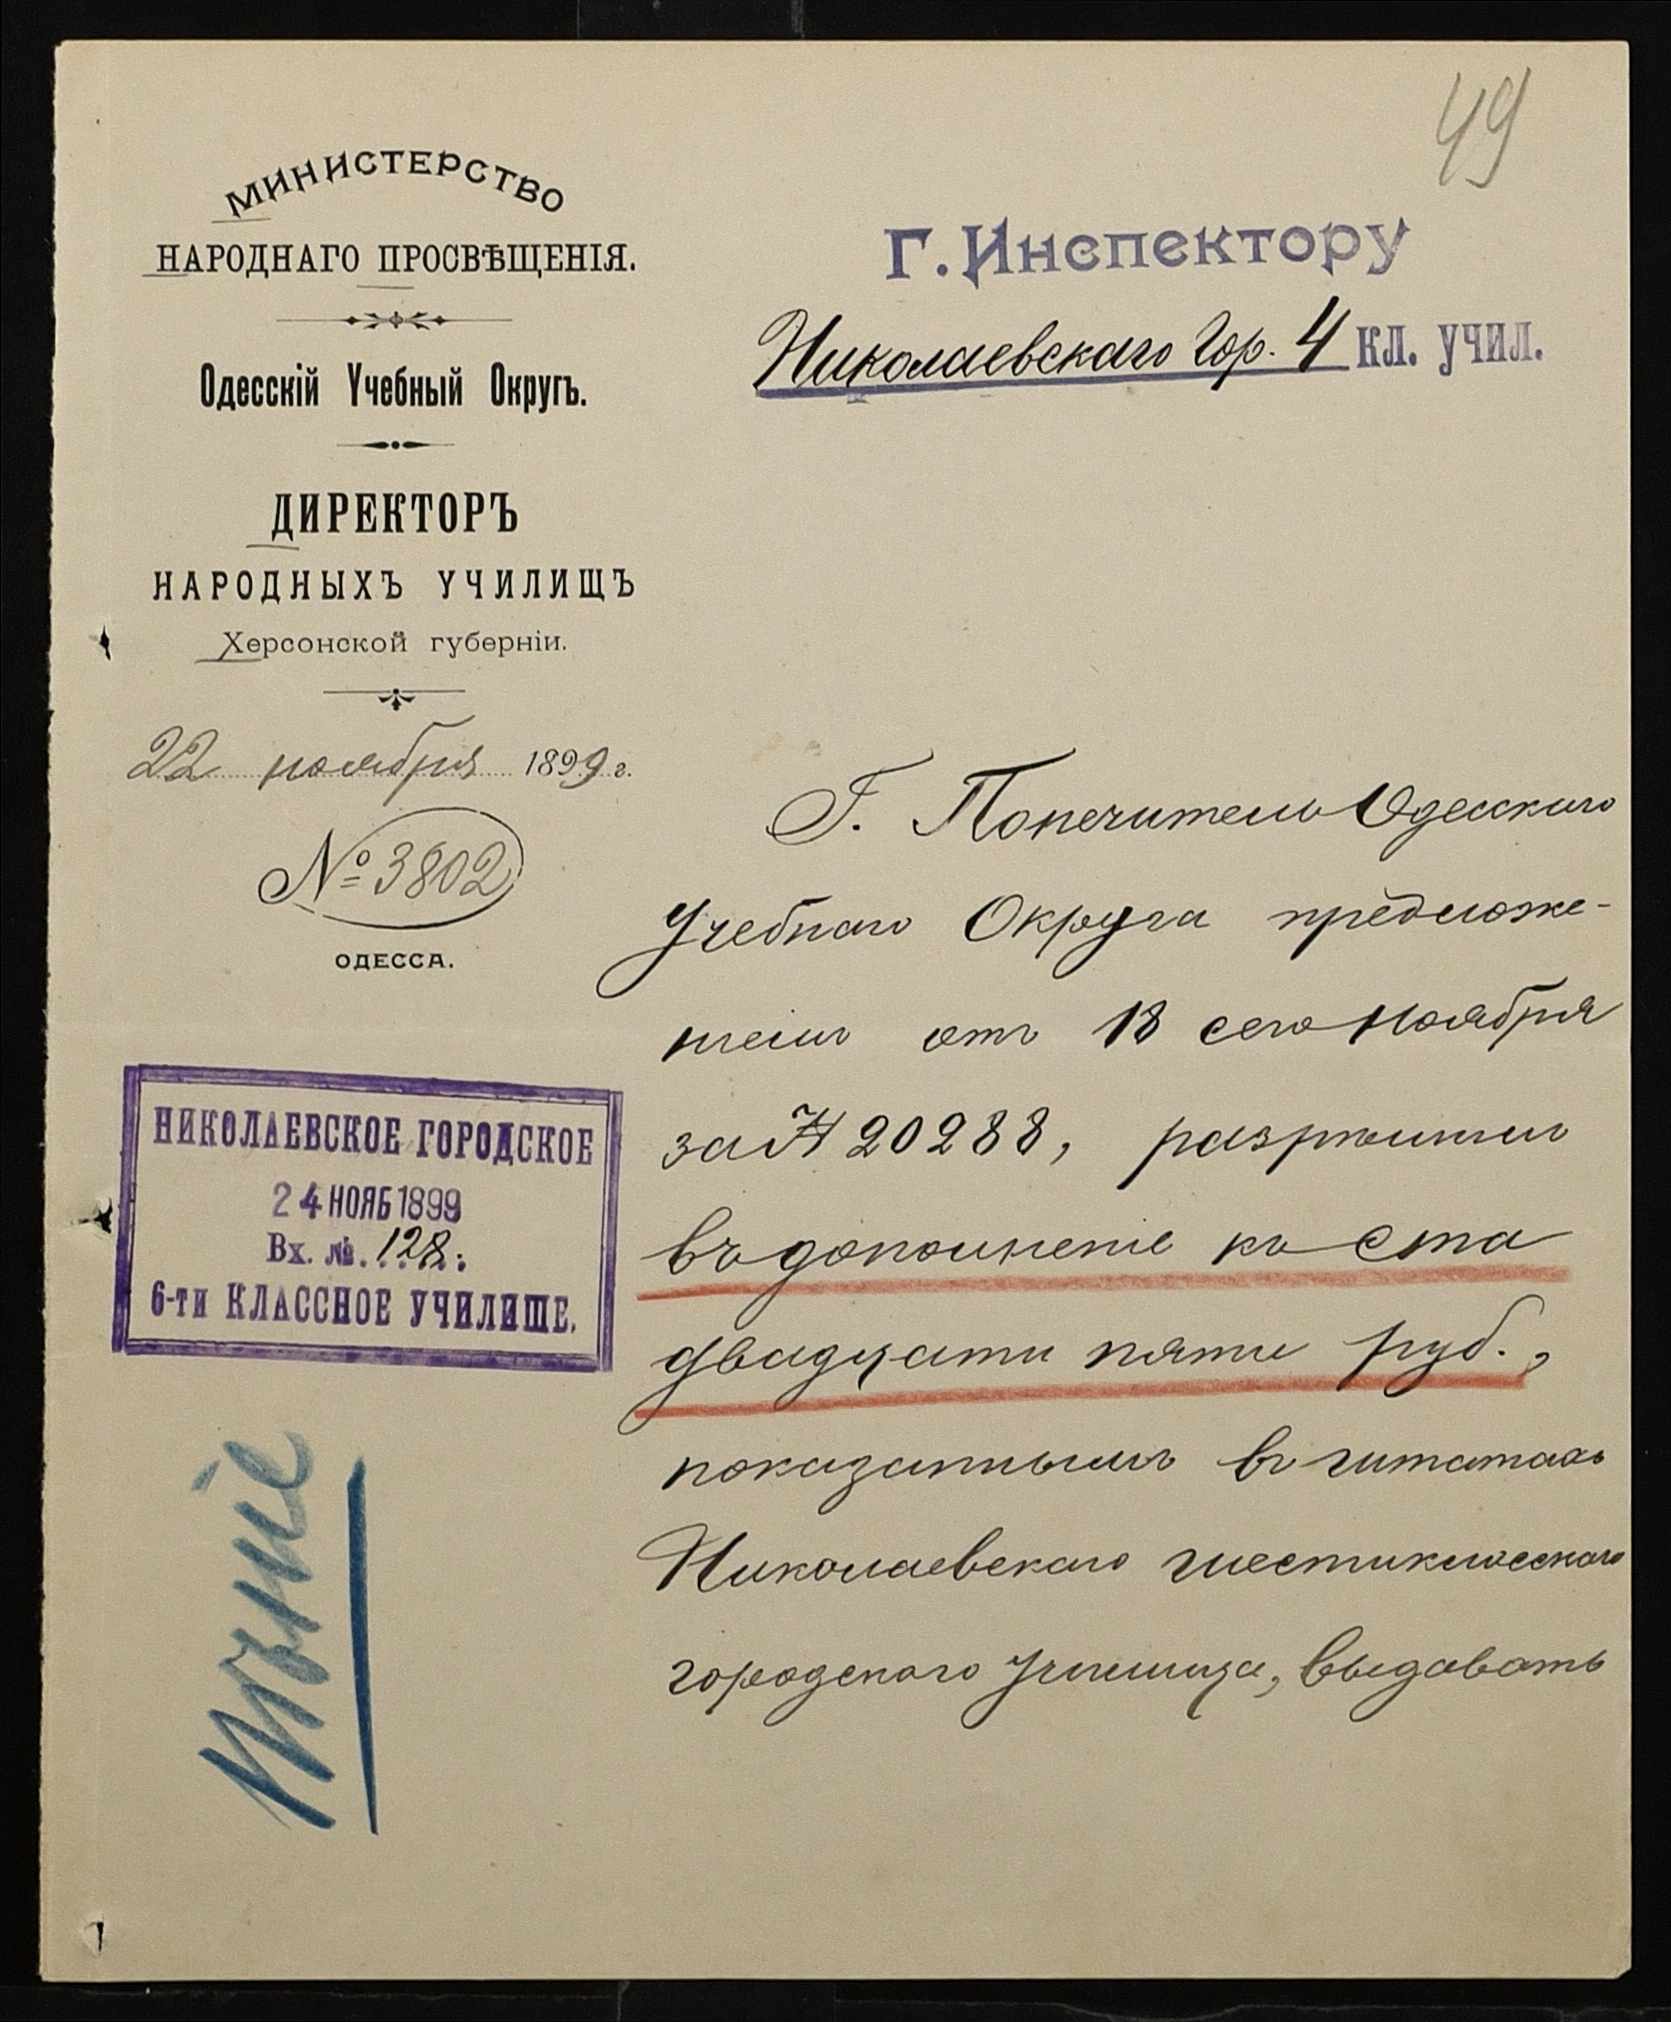 49
МИНИСТЕРСТВО
НАРОДНАГО ПРОСВѢЩЕНІЯ.
Одесскій Учебный Округъ.
ДИРЕКТОРЪ
НАРОДНЫХЪ УЧИЛИЩЪ
Херсонской губерніи.
22 ноября 1899 г.
№ 3802
ОДЕССА.
Г. Инспектору
Николаевскаго Гор. 4 КЛ. УЧИЛ.
Г. Попечитель Одесскаго
Учебнаго Округа предложе-
ніемъ отъ 18 сего Ноября
за № 20288, разрѣшилъ
въ дополненіе къ ста
двадцати пяти руб.,
показаннымъ въ штатахъ
Николаевскаго шестикласснаго
городского Училища, выдавать
НИКОЛАЕВСКОЕ ГОРОДСКОЕ
24 НОЯБ 1899
Вх. №. 128.
6-ти КЛАССНОЕ УЧИЛИЩЕ.